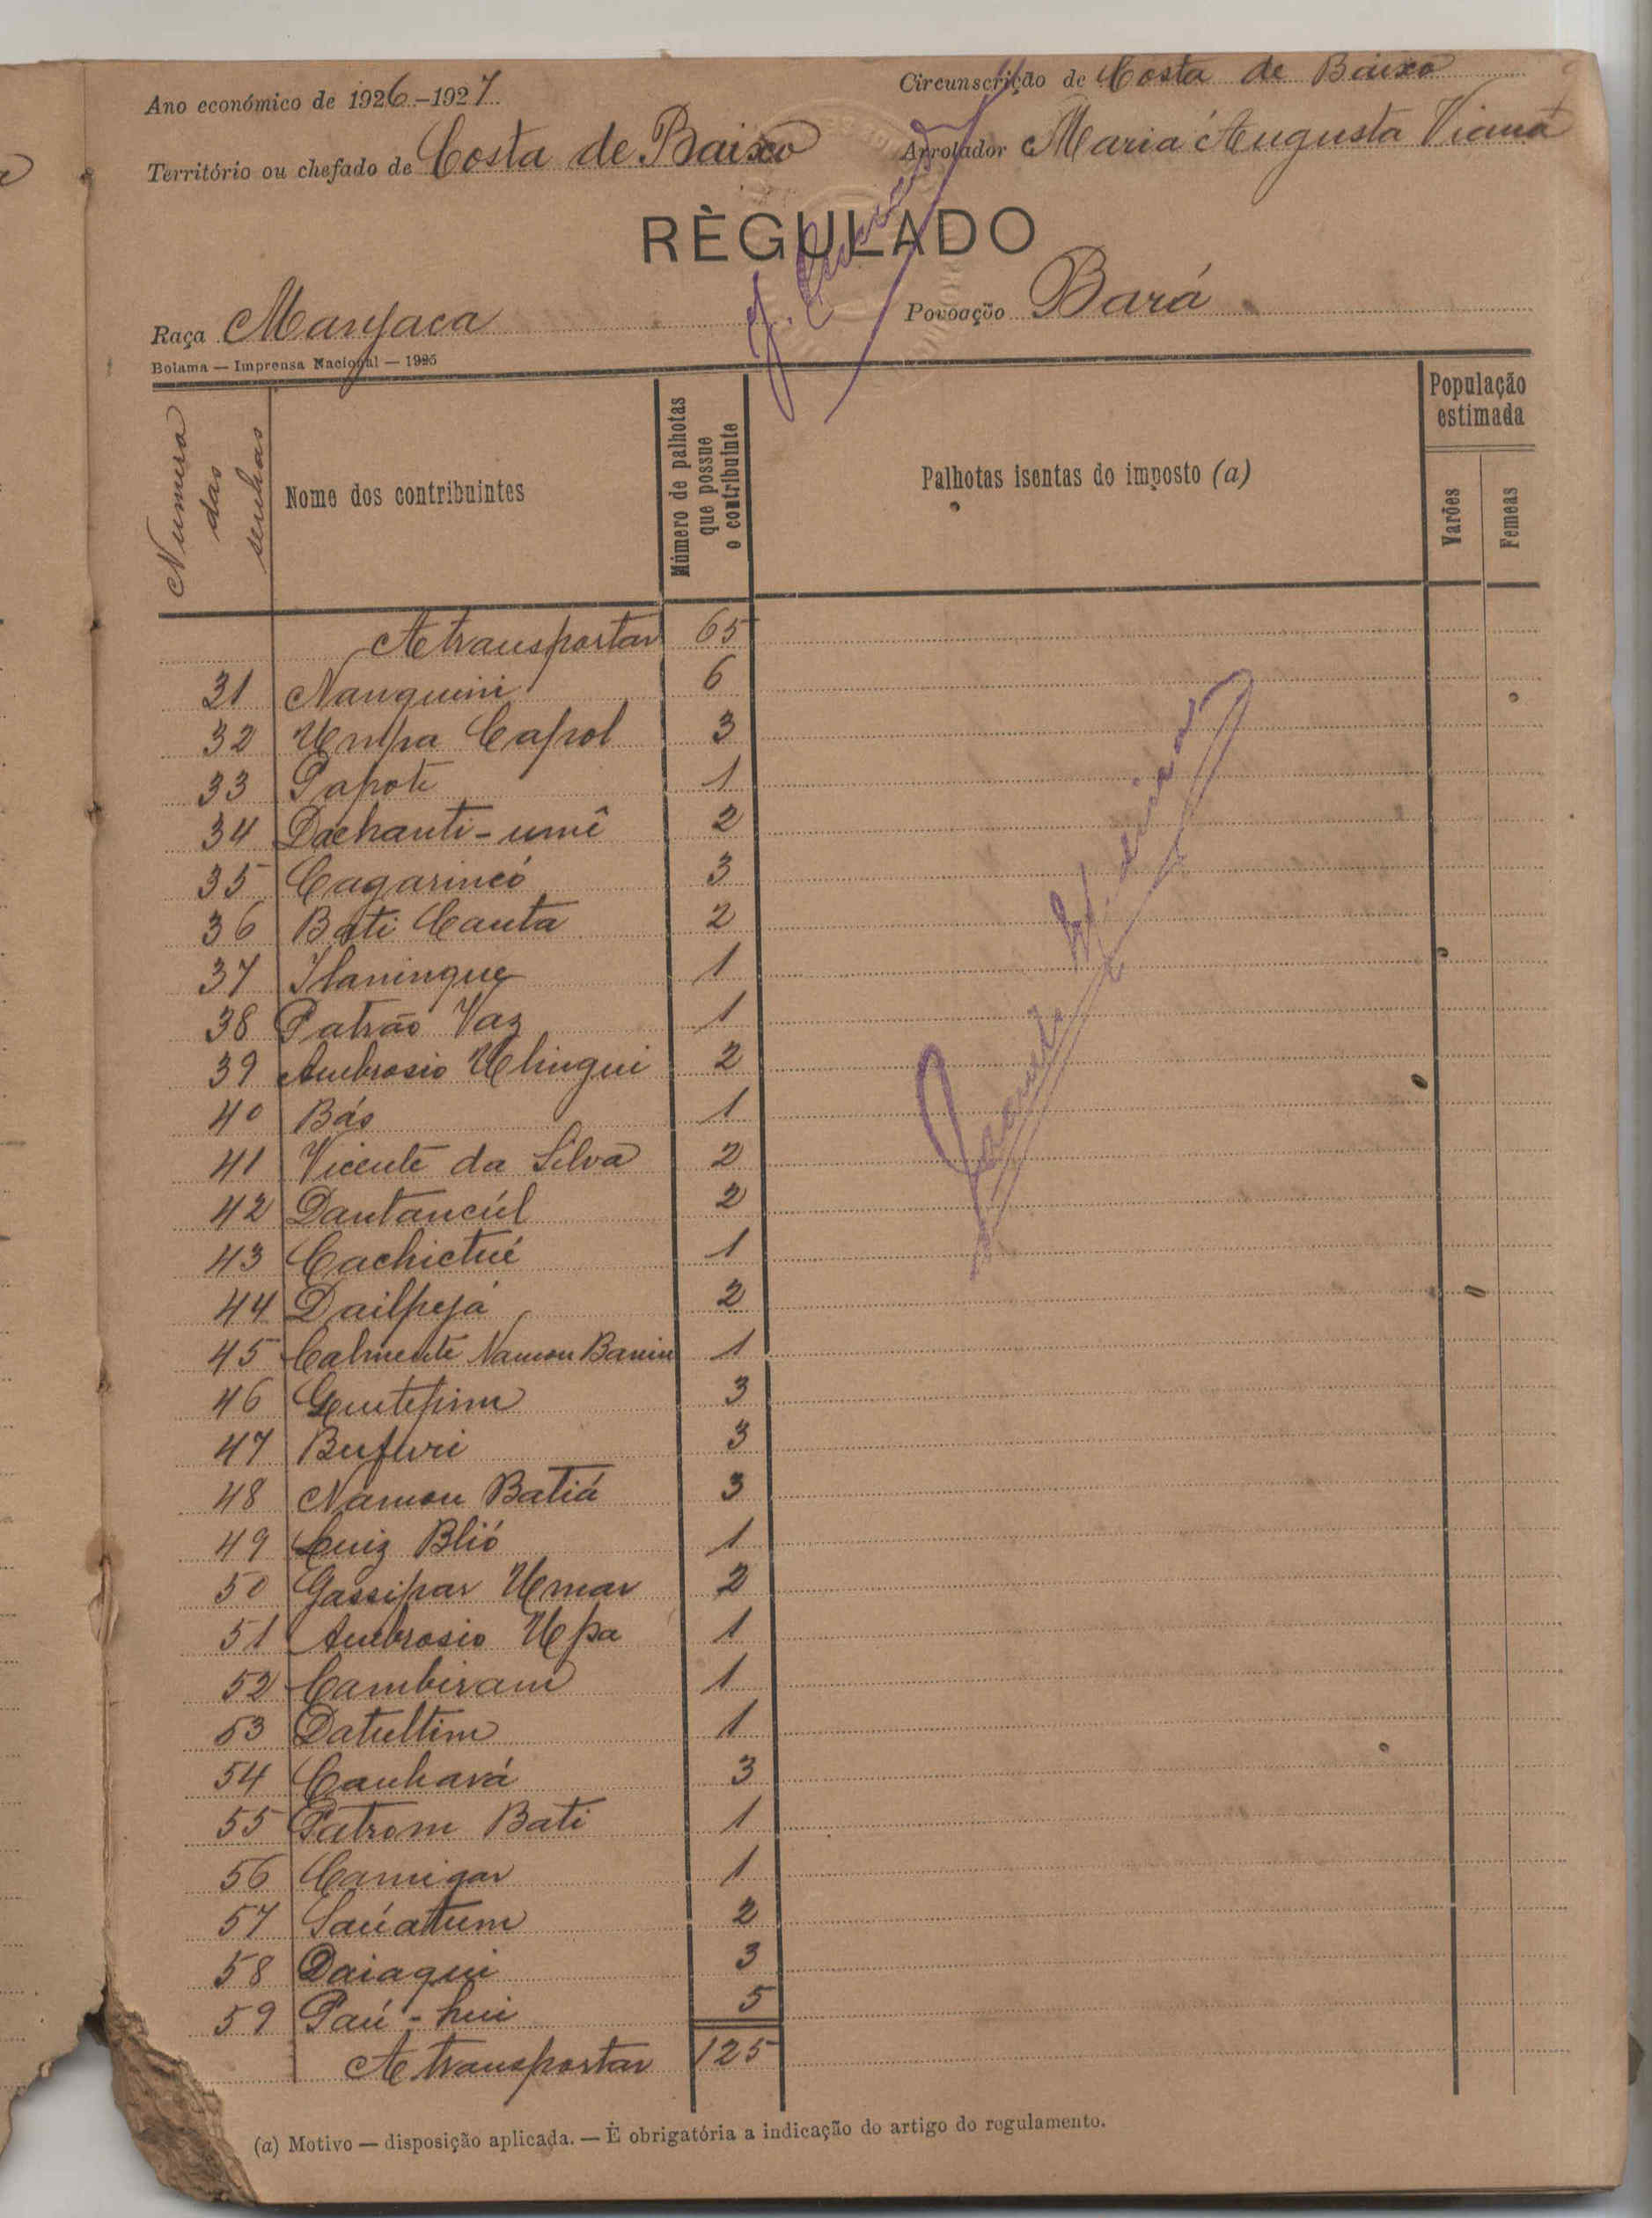 Ano económico de 1926-1927
Circunscrição de Costa de Baixo
Território ou chefado de Costa de Baixo
Arrolador Maria Augusta Viana
RÈGULADO
Raça Manjaca
Povoação Bará
Bolama — Imprensa Nacional — 1925
Numero das senhas
Nome dos contribuintes
Número de palhotas que possue o contribuinte
Palhotas isentas do imposto (a)
População estimada
Varões
Femeas
A transportar 65
31 Nanquini 6
32 Umpa Capol 3
33 Papote 1
34 Dachanti-umê 2
35 Cagarincó 3
36 Bati Canta 2
37 Ilaningue 1
38 Patrão Vaz 1
39 Ambrosio Ulingui 2
40 Bás 1
41 Vicente da Silva 2
42 Dantancúl 2
43 Cachictué 1
44 Dailpejá 2
45 Calmente Namon Banin 1
46 Gentepim 3
47 Bufuri 3
48 Namon Batiá 3
49 Luiz Blió 1
50 Gassipar Umar 2
51 Ambrosio Upa 1
52 Cambiram 1
53 Datultim 1
54 Canhará 3
55 Patrom Bati 1
56 Camigar 1
57 Saúatum 2
58 Daiaqui 3
59 Paú-hui 5
A transportar 125
(a) Motivo — disposição aplicada. — È obrigatória a indicação do artigo do regulamento.